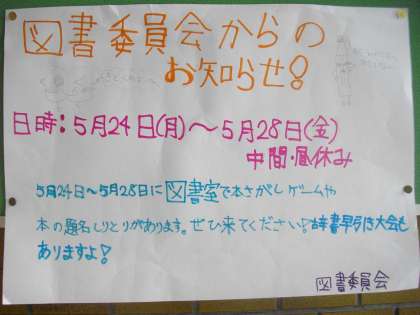 図書委員会からの
お知らせ!
日時:5月24日(月)～5月28日(金)
中間・昼休み
5月24日～5月28日に図書室で本さがしゲームや
本の題名しりとりがあります。ぜひ来てください!辞書早引き大会も
ありますよ!
図書委員会